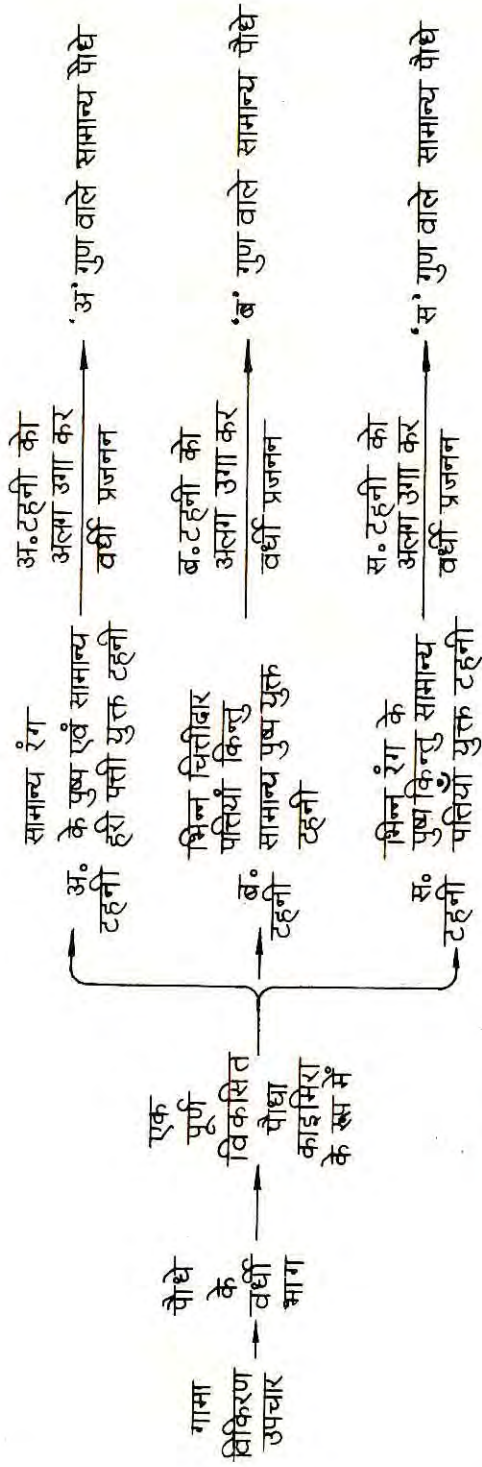 गामा
विकिरण
उपचार
पौधे
के
वर्धी
भाग
एक
पूर्ण
विकसित
पौधा
काइमिरा
के रूप में
अ.
टहनी
सामान्य रंग
के पुष्प एवं सामान्य
हरी पत्ती युक्त टहनी
अ. टहनी को
अलग उगा कर
वर्धी प्रजनन
'अ' गुण वाले सामान्य पौधे
ब.
टहनी
भिन्न चित्तीदार
पत्तियां किन्तु
सामान्य पुष्प युक्त
टहनी
ब. टहनी को
अलग उगा कर
वर्धी प्रजनन
'ब' गुण वाले सामान्य पौधे
स.
टहनी
भिन्न रंग के
पुष्प किन्तु सामान्य
पत्तियाँ युक्त टहनी
स. टहनी को
अलग उगा कर
वर्धी प्रजनन
'स' गुण वाले सामान्य पौधे